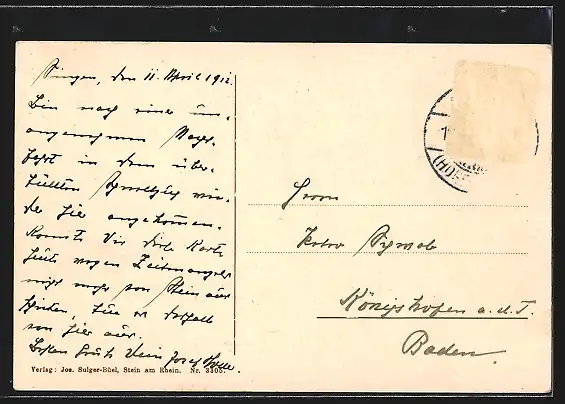 Singen, den 11. April 1912.
Bin nach einer un-
angenehmen Nach-
fahrt in dem über-
füllten Schnellzug wie-
der hier angekommen.
Konnte Dir die Karte
heute wegen Zeitmangel
nicht mehr von Stein aus
schicken, tue es deshalb
von hier aus.
Besten Gruß Dein Josef
Verlag: Jos. Sulger-Büel, Stein am Rhein. Nr. 3305.
Herrn
Schwab
Königshofen a.d.T.
Baden.